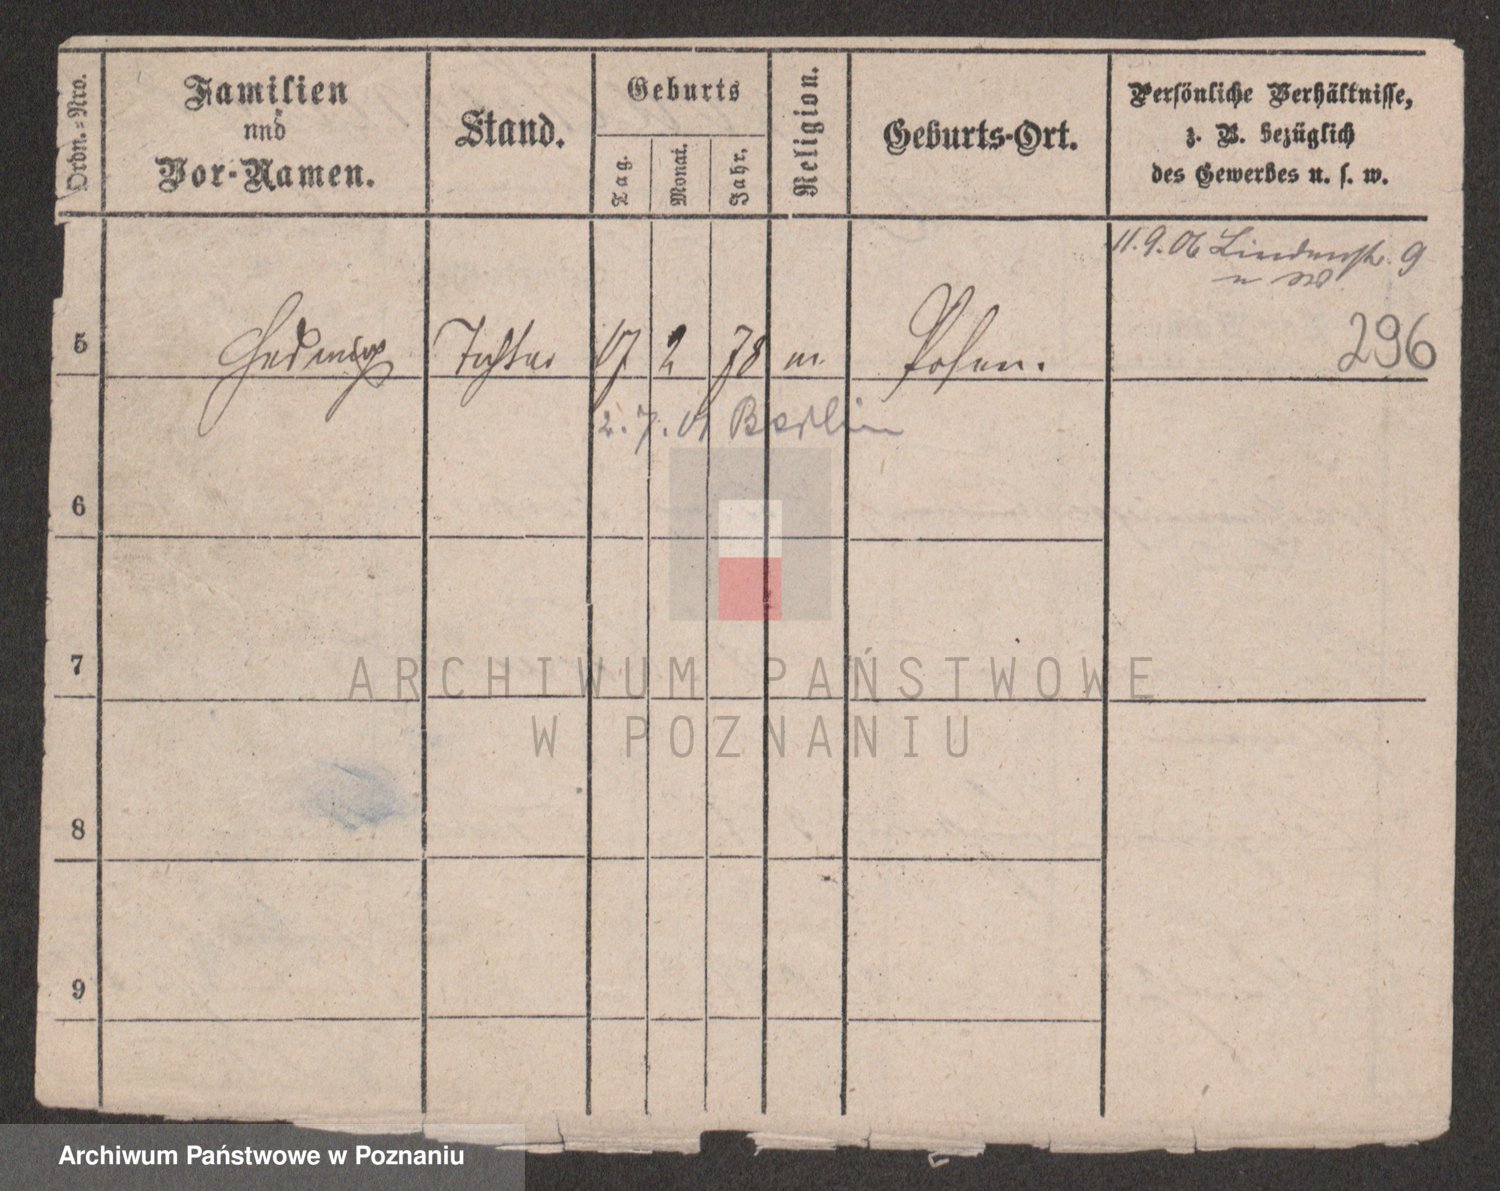 Ordn.=Nro.
Familien
und
Vor-Namen.
Stand.
Geburts
Tag.
Monat.
Jahr.
Religion.
Geburts-Ort.
Persönliche Verhältnisse,
z. B. bezüglich
des Gewerbes u. s. w.
11.9.06 Lindenstr. 9
5 Hedwig Tochter 17 2 78 m. Posen. 296
2.7.01 Berlin
6
7
8
9
ARCHIWUM PAŃSTWOWE
W POZNANIU
Archiwum Państwowe w Poznaniu